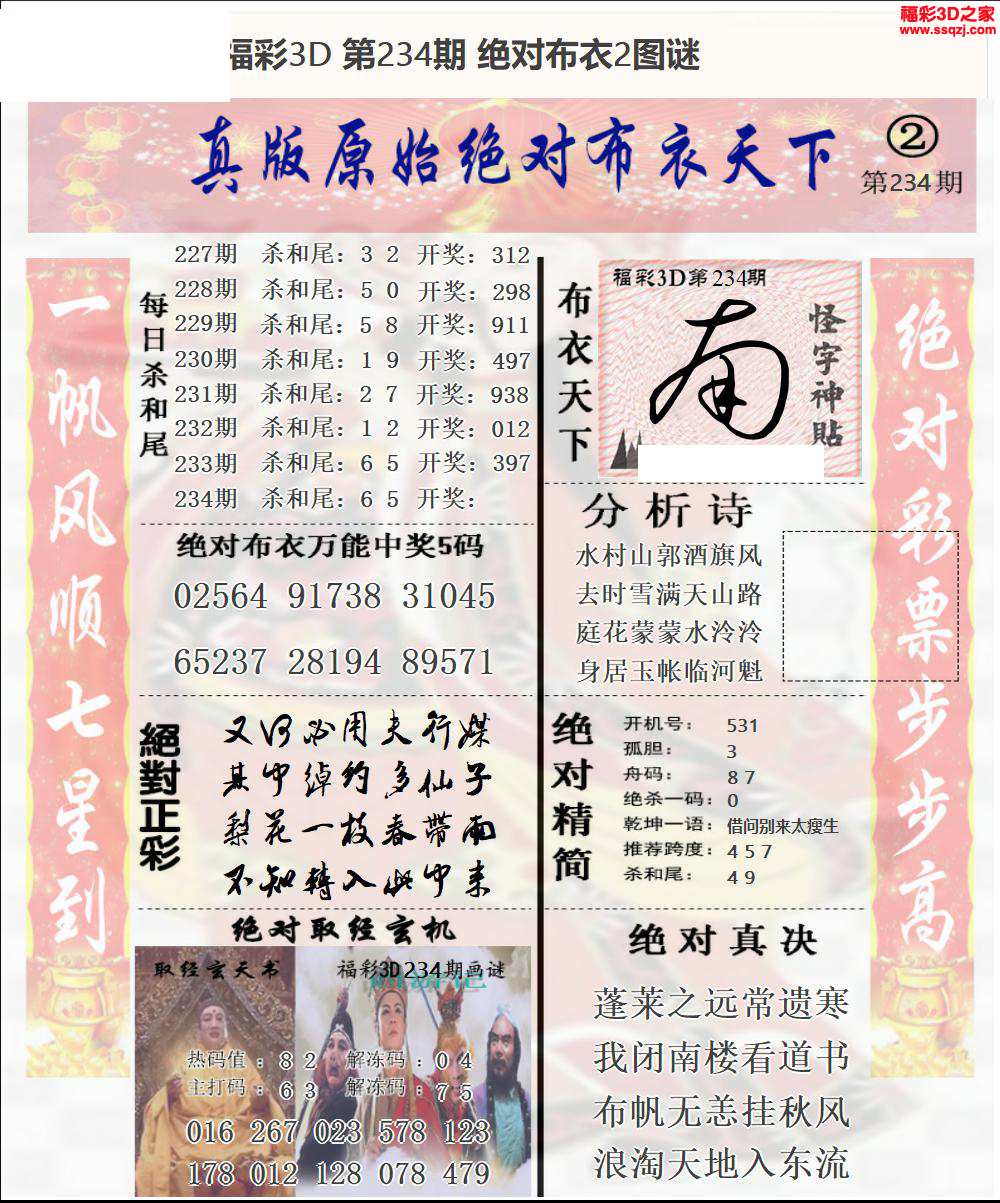 福彩3D之家
www.ssqzj.com
福彩3D 第234期 绝对布衣2图谜
真版原始绝对布衣天下
②
第234期
一帆风顺七星到
每日杀和尾
227期 杀和尾：3 2 开奖：312
228期 杀和尾：5 0 开奖：298
229期 杀和尾：5 8 开奖：911
230期 杀和尾：1 9 开奖：497
231期 杀和尾：2 7 开奖：938
232期 杀和尾：1 2 开奖：012
233期 杀和尾：6 5 开奖：397
234期 杀和尾：6 5 开奖：
绝对布衣万能中奖5码
02564 91738 31045
65237 28194 89571
絕對正彩
又何必用夫行媒
其中绰约多仙子
梨花一枝春带雨
不知转入此中来
绝对取经玄机
取经玄天书
福彩3D234期画谜
热码值：8 2 解冻码：0 4
主打码：6 3 解冻码：7 5
016 267 023 578 123
178 012 128 078 479
布衣天下
福彩3D第234期
怪字神貼
分析诗
水村山郭酒旗风
去时雪满天山路
庭花蒙蒙水泠泠
身居玉帐临河魁
绝对精简
开机号：531
孤胆：3
舟码：8 7
绝杀一码：0
乾坤一语：借问别来太瘦生
推荐跨度：4 5 7
杀和尾：4 9
绝对真决
蓬莱之远常遗寒
我闭南楼看道书
布帆无恙挂秋风
浪淘天地入东流
绝对彩票步步高